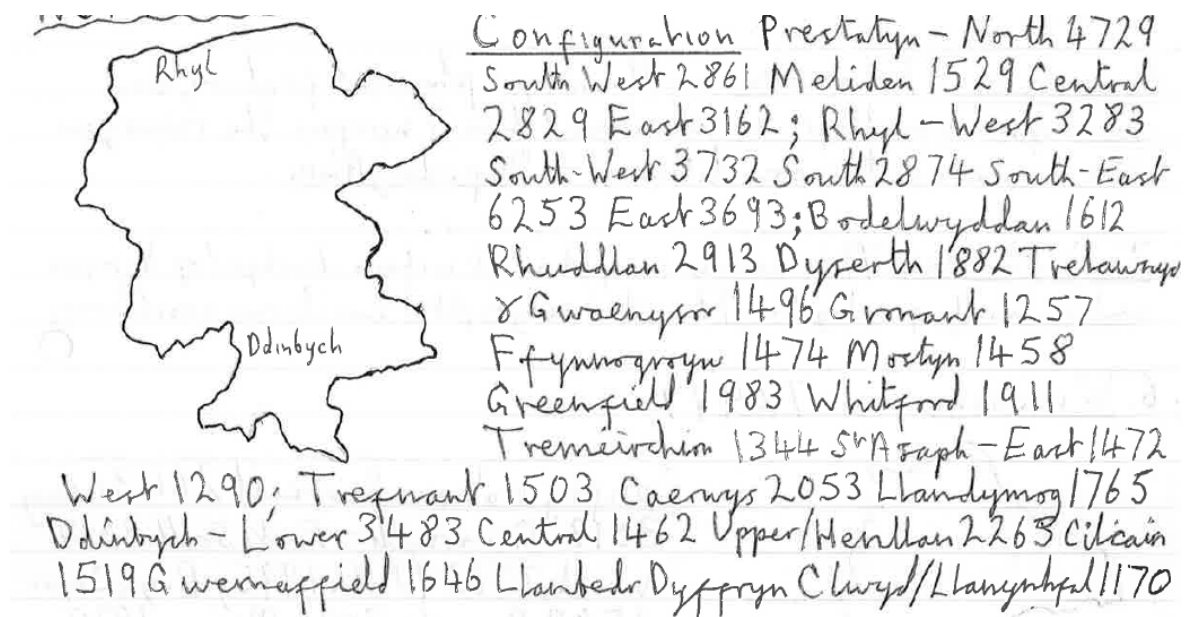 Rhyl
Ddinbych
Configuration Prestatyn - North 4729
South West 2861 Meliden 1529 Central
2829 East 3162; Rhyl - West 3283
South-West 3732 South 2874 South-East
6253 East 3693; Bodelwyddan 1612
Rhuddlan 2913 Dyserth 1882 Trelawnyd
& Gwaenysor 1496 Gronant 1257
Ffynnogroyw 1474 Mostyn 1458
Greenfield 1983 Whitford 1911
Tremeirchion 1344 St Asaph - East 1472
West 1290; Trefnant 1503 Caerwys 2053 Llandyrnog 1765
Ddinbych - Lower 3483 Central 1462 Upper/Henllan 2263 Cilcain
1519 Gwernaffield 1646 Llanbedr Dyffryn Clwyd/Llanynhfal 1170